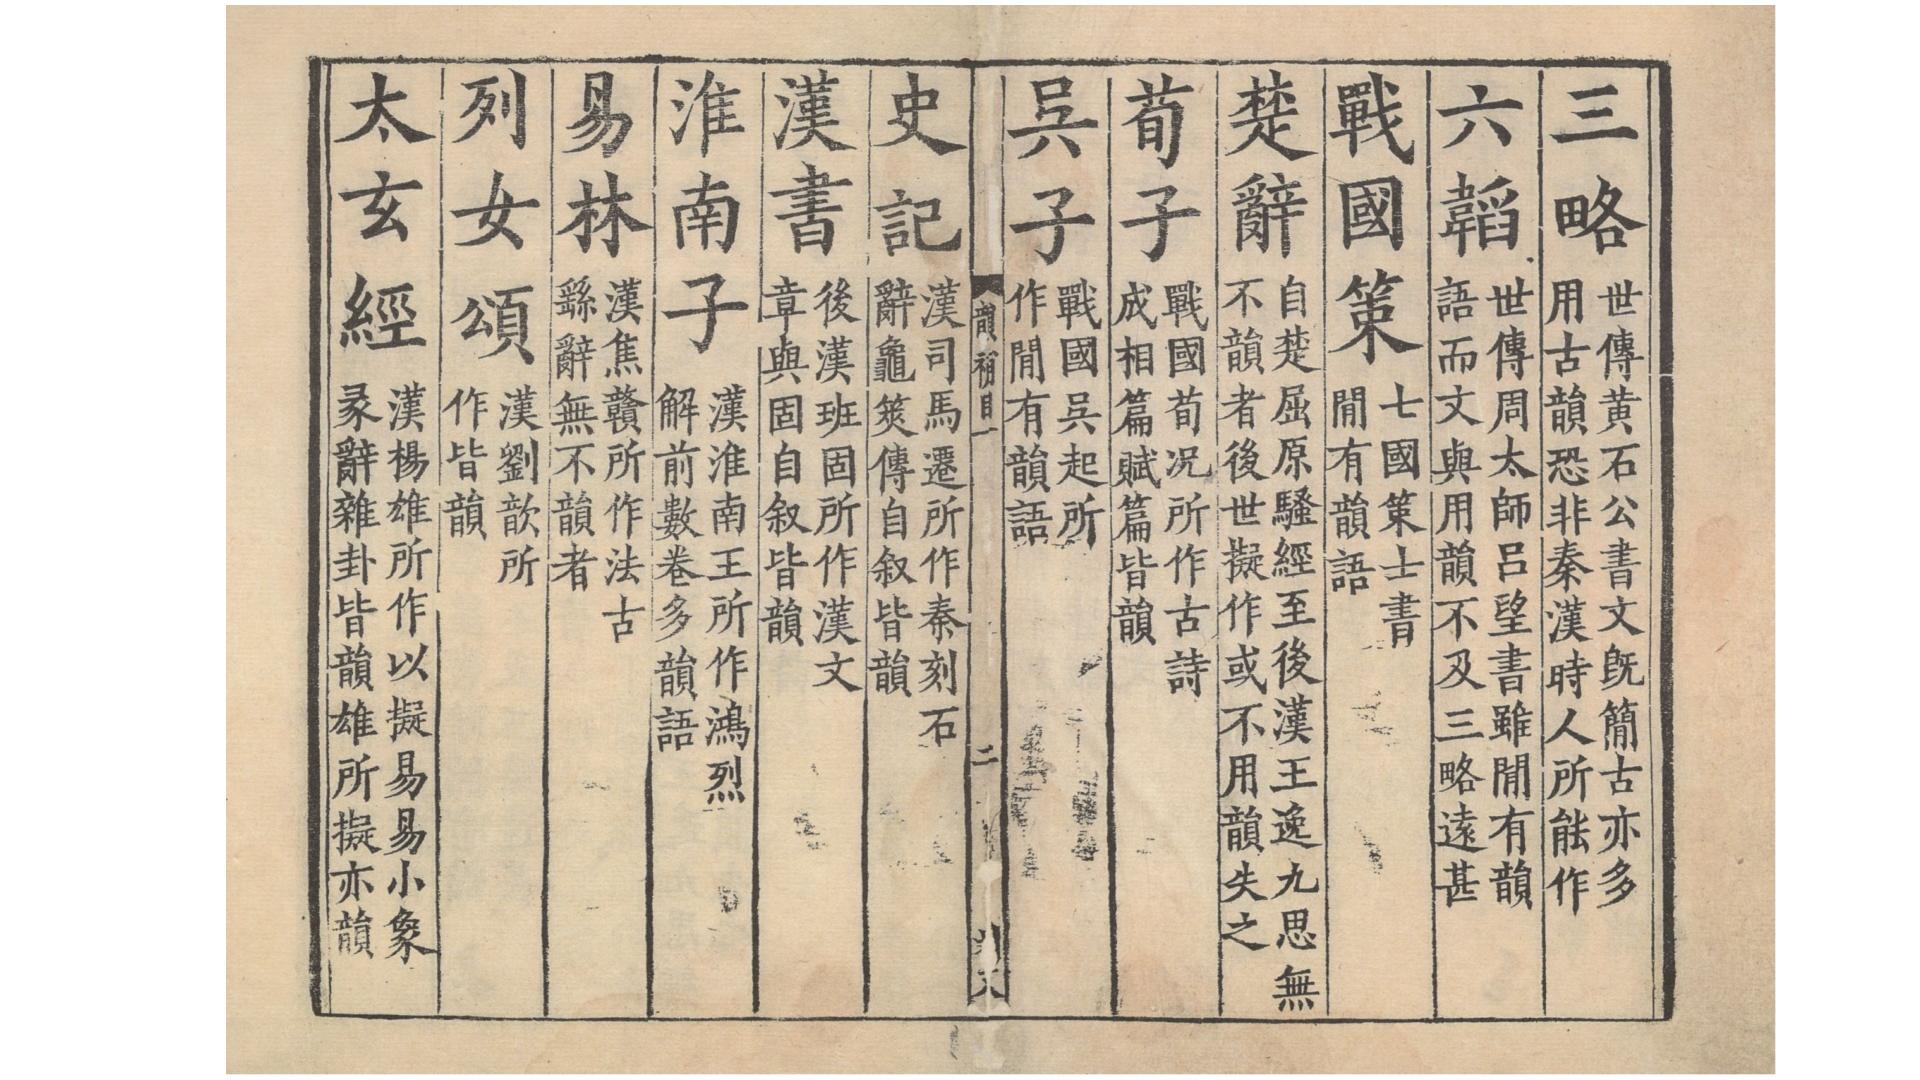 三略 世傳黄石公書文旣簡古亦多
用古韻恐非秦漢時人所能作
六韜 世傳周太師呂望書雖閒有韻
語而文與用韻不及三略逺甚
戰國策 七國策士書
閒有韻語
楚辭 自楚屈原騷經至後漢王逸九思無
不韻者後世擬作或不用韻失之
荀子 戰國荀况所作古詩
成相篇賦篇皆韻
吳子 戰國吳起所
作閒有韻語
韻補目一
二
史記 漢司馬遷所作秦刻石
辭龜筴傳自叙皆韻
漢書 後漢班固所作漢文
章與固自叙皆韻
淮南子 漢淮南王所作鴻烈
解前數卷多韻語
易林 漢焦贛所作法古
繇辭無不韻者
列女頌 漢劉歆所
作皆韻
太玄經 漢楊雄所作以擬易易小象
彖辭雜卦皆韻雄所擬亦韻